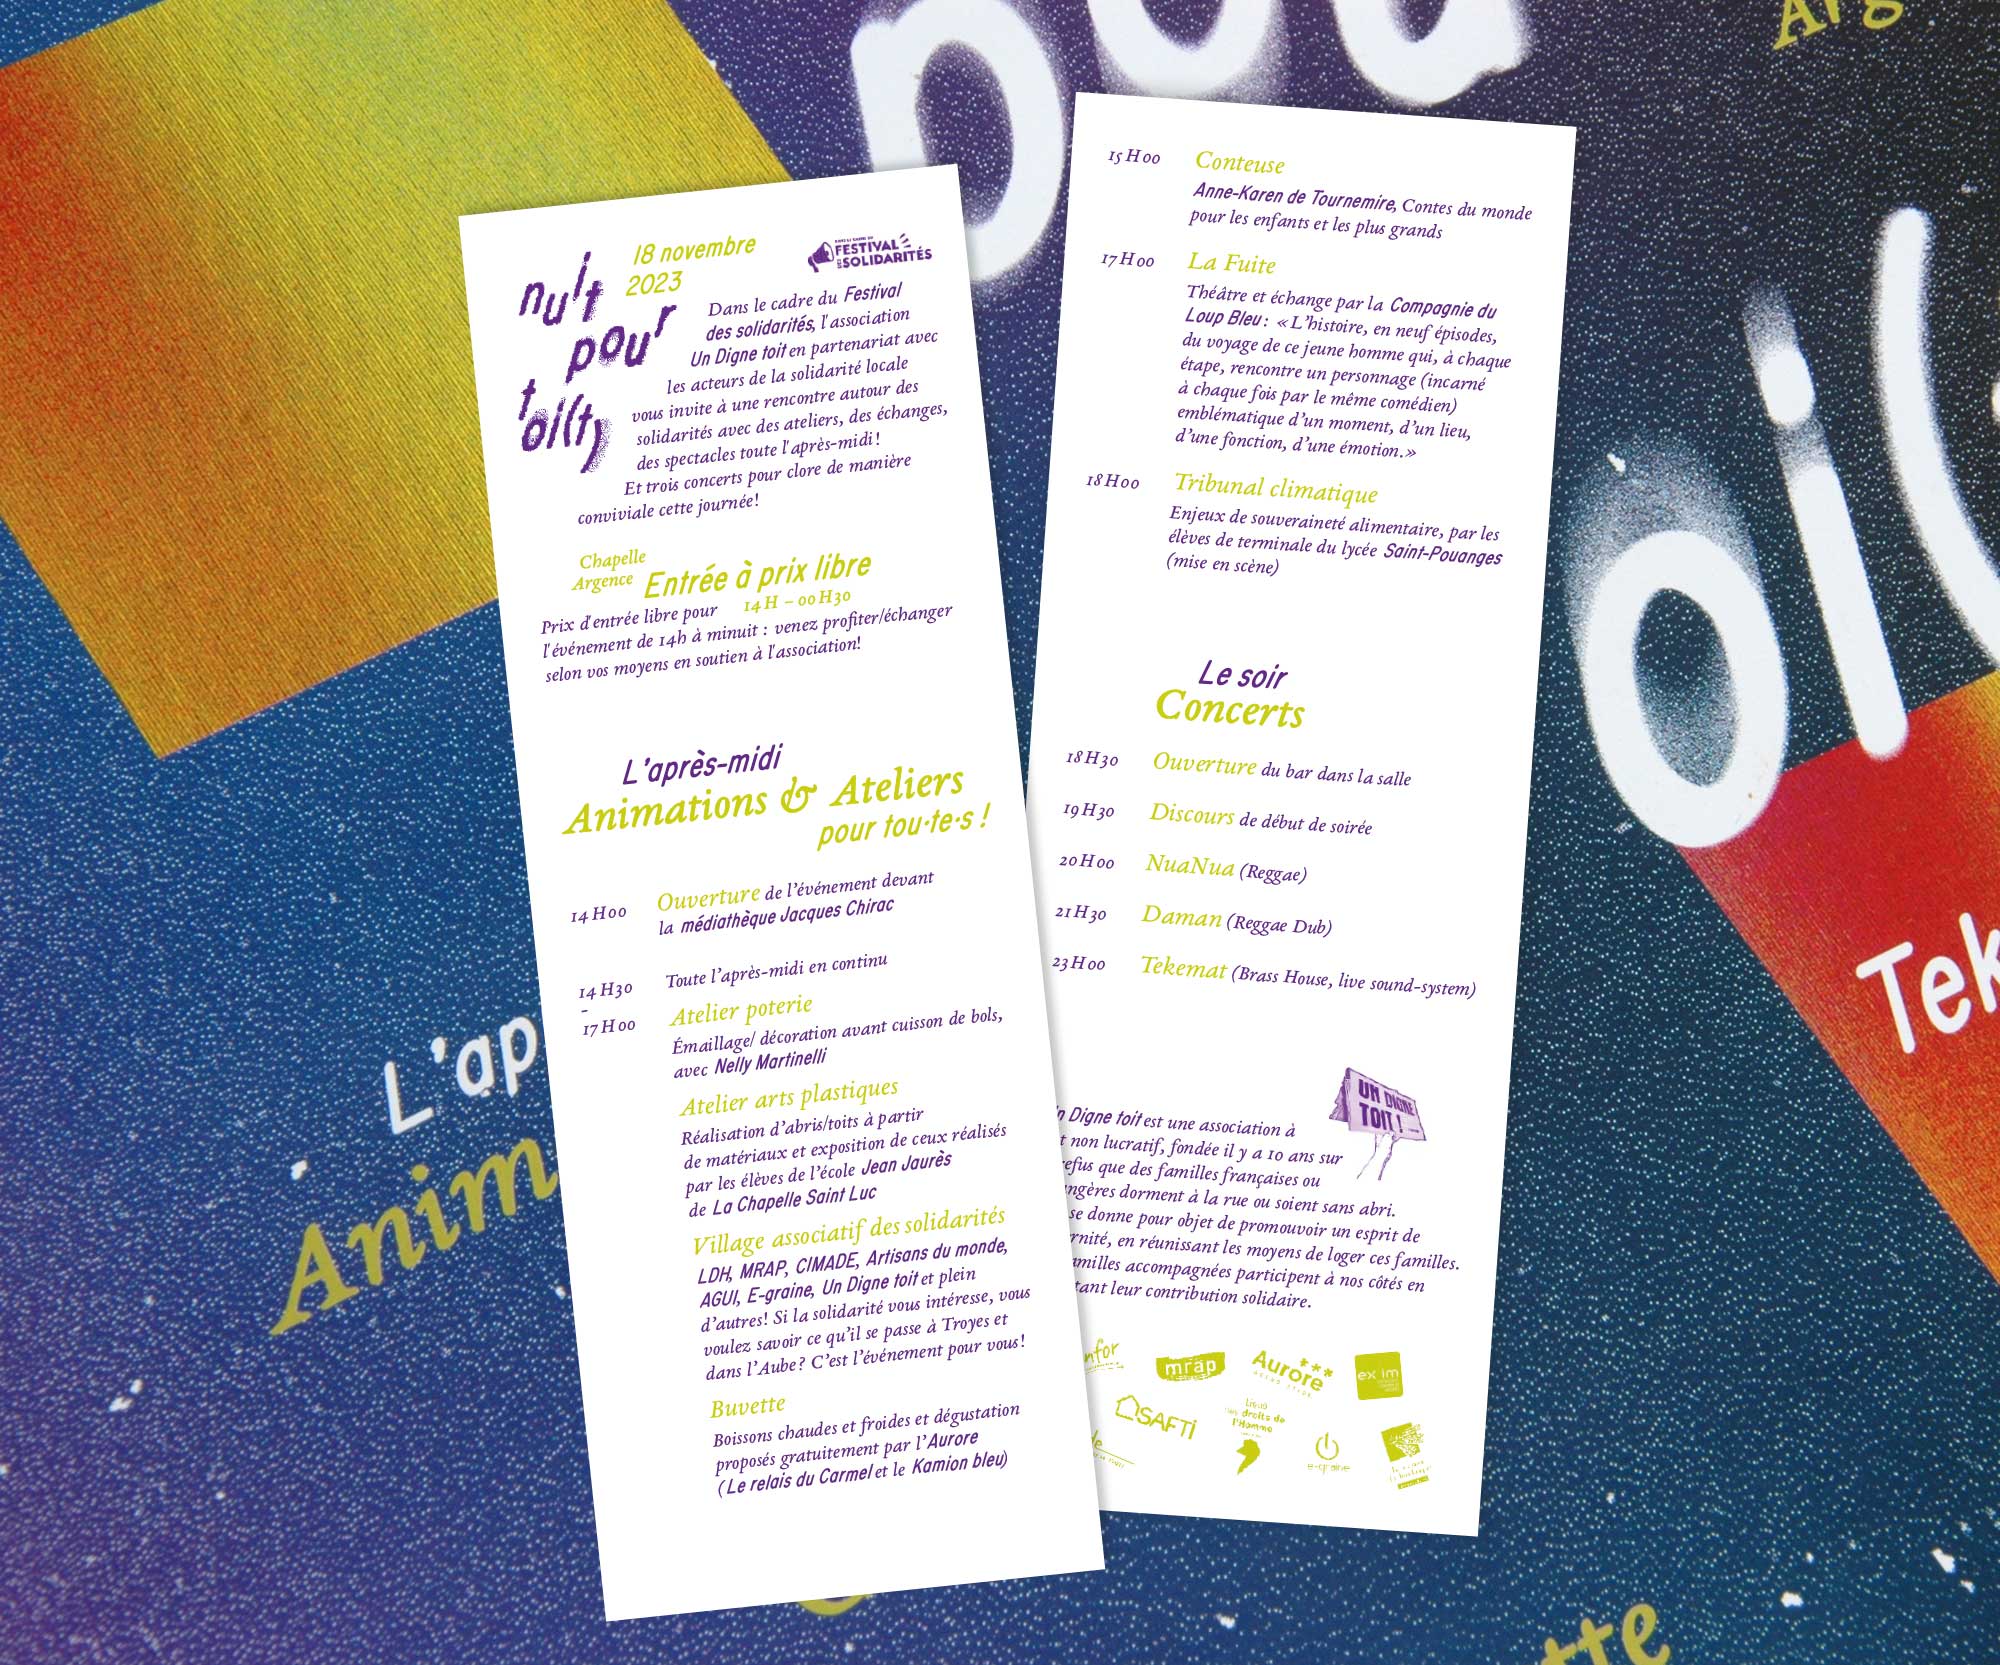 nuit
pour
toi(t)
18 novembre
2023
DANS LE CADRE DU
FESTIVAL
DES SOLIDARITÉS
Dans le cadre du Festival
des solidarités, l'association
Un Digne toit en partenariat avec
les acteurs de la solidarité locale
vous invite à une rencontre autour des
solidarités avec des ateliers, des échanges,
des spectacles toute l'après-midi!
Et trois concerts pour clore de manière
conviviale cette journée!
Chapelle
Argence
Entrée à prix libre
14 H – 00 H30
Prix d'entrée libre pour
l'événement de 14h à minuit : venez profiter/échanger
selon vos moyens en soutien à l'association!
L'après-midi
Animations & Ateliers
pour tou·te·s !
14 H00 Ouverture de l’événement devant
la médiathèque Jacques Chirac
14 H30
-
17 H 00
Toute l’après-midi en continu
Atelier poterie
Émaillage/ décoration avant cuisson de bols,
avec Nelly Martinelli
Atelier arts plastiques
Réalisation d’abris/toits à partir
de matériaux et exposition de ceux réalisés
par les élèves de l’école Jean Jaurès
de La Chapelle Saint Luc
Village associatif des solidarités
LDH, MRAP, CIMADE, Artisans du monde,
AGUI, E-graine, Un Digne toit et plein
d’autres! Si la solidarité vous intéresse, vous
voulez savoir ce qu’il se passe à Troyes et
dans l’Aube? C’est l’événement pour vous!
Buvette
Boissons chaudes et froides et dégustation
proposés gratuitement par l’Aurore
(Le relais du Carmel et le Kamion bleu)
15 H 00 Conteuse
Anne-Karen de Tournemire, Contes du monde
pour les enfants et les plus grands
17 H 00 La Fuite
Théâtre et échange par la Compagnie du
Loup Bleu : «L’histoire, en neuf épisodes,
du voyage de ce jeune homme qui, à chaque
étape, rencontre un personnage (incarné
à chaque fois par le même comédien)
emblématique d’un moment, d’un lieu,
d’une fonction, d’une émotion.»
18 H00 Tribunal climatique
Enjeux de souveraineté alimentaire, par les
élèves de terminale du lycée Saint-Pouanges
(mise en scène)
Le soir
Concerts
18 H30 Ouverture du bar dans la salle
19 H30 Discours de début de soirée
20 H 00 NuaNua (Reggae)
21 H30 Daman (Reggae Dub)
23 H 00 Tekemat (Brass House, live sound-system)
UN DIGNE
TOIT !
n Digne toit est une association à
t non lucratif, fondée il y a 10 ans sur
efus que des familles françaises ou
ngères dorment à la rue ou soient sans abri.
se donne pour objet de promouvoir un esprit de
rnité, en réunissant les moyens de loger ces familles.
amilles accompagnées participent à nos côtés en
tant leur contribution solidaire.
nfor
mrap
Aurore
ex im
SAFTI
Ligue
des droits de
l'Homme
e-graine
de
pou
Arg
oi(
Tek
L'ap
Anim
tte